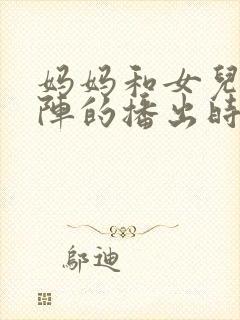 妈妈和女兒
陣的播出時
鄔迪